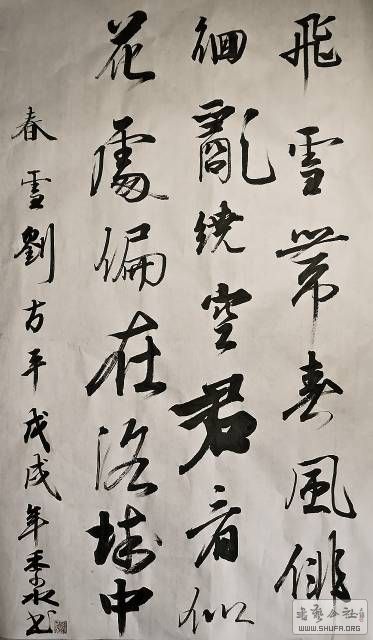 飛雪帶春風徘
徊亂繞空君看似
花處偏在洛城中
春雪劉方平戊戌年书
书艺公社
WWW.SHUFA.ORG